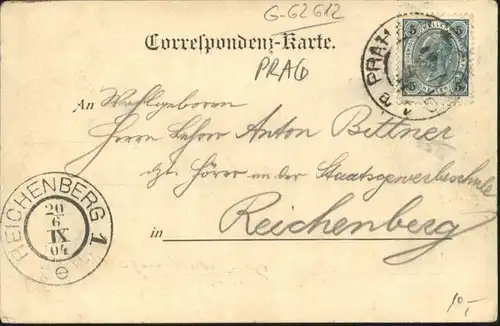 G-62612
Correspondenz-Karte.
PRAG
5 5
5 5
PRAH
a
An Wohlgeboren
Herrn Anton Bittner
Hörer an der Staatsgewerbeschule
in Reichenberg
REICHENBERG 1
20
6
IX
04
e
10,-